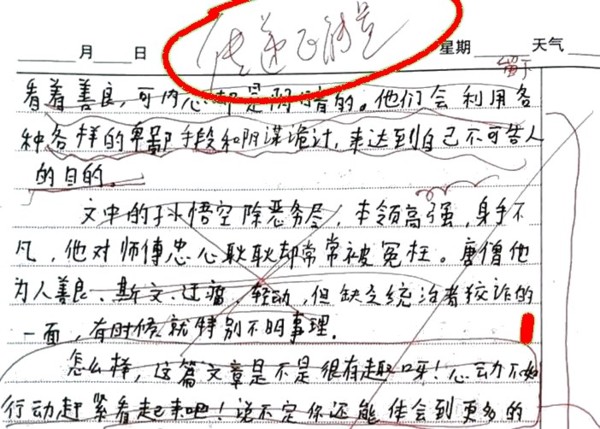 传递正能量
月 日 星期 天气
看着善良,可内心却是阴暗的。他们会利用各
种各样的卑鄙手段和阴谋诡计,来达到自己不可告人
的目的。
文中的孙悟空除恶务尽,本领高强,身手不
凡,他对师傅忠心耿耿却常常被冤枉。唐僧他
为人善良、斯文、迂腐、轻动,但缺乏统治者狡诈的
一面,有时候就特别不明事理。
怎么样,这篇文章是不是很有趣呀!心动不如
行动赶紧看起来吧!说不定你还能体会到更多的